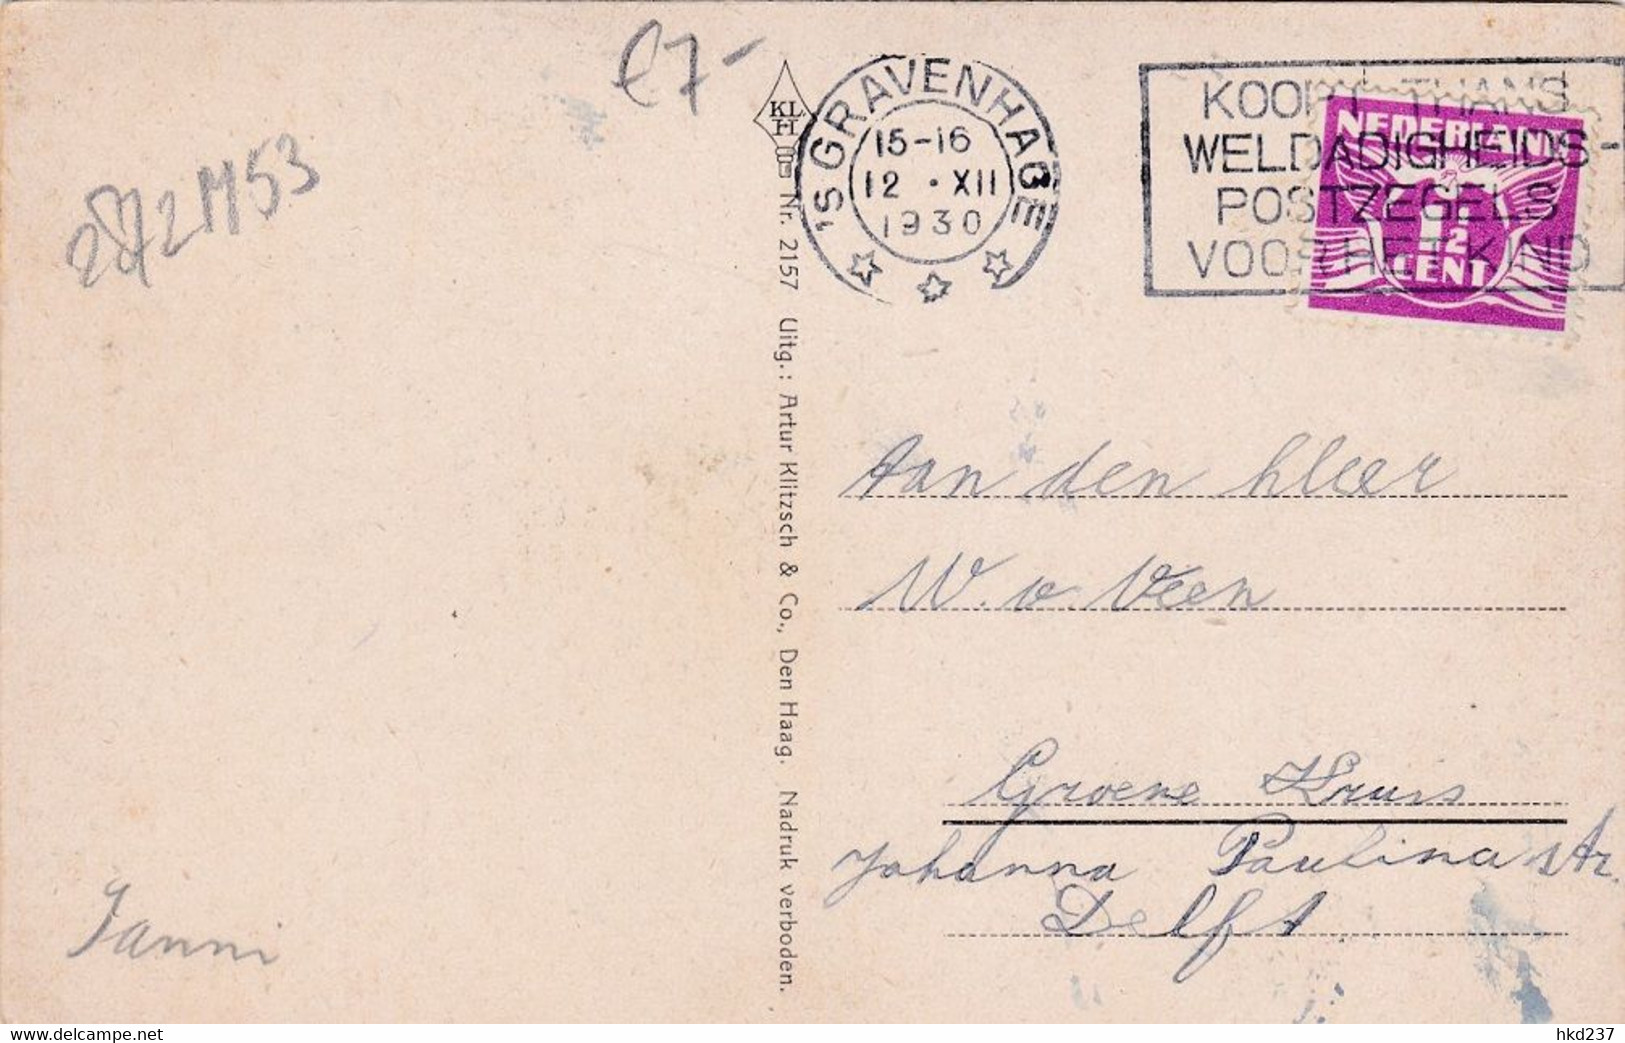 €7-
2872M53
KLH
Nr. 2157 Uitg.: Artur Klitzsch & Co., Den Haag. Nadruk verboden.
'S GRAVENHAGE
15-16
12 · XII
1930
KOOPT THANS
WELDADIGHEIDS-
POSTZEGELS
VOOR HET KIND
NEDERLAND
1½
CENT
Aan den Heer
W. v. Veen
Groene Kruis
Johanna Paulina str.
Delft
Janni
delcampe.net
hkd237